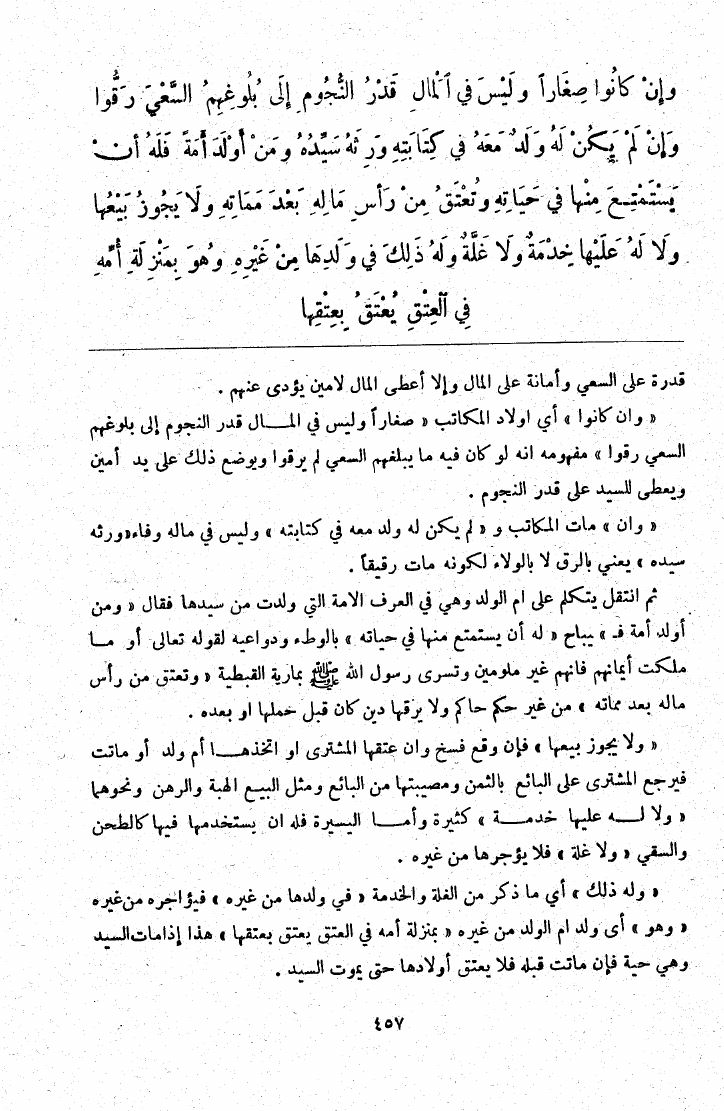 وإِنْ كانُوا صِغَاراً ولَيْسَ في ٱلْمَالِ قَدْرُ النُّجُومِ إِلَى بُلُوغِهِمُ السَّعْيَ رَقُّوا
وَإِنْ لَمْ يَكُنْ لَهُ وَلَدٌ مَعَهُ فِي كِتَابَتِهِ وَرِثَهُ سَيِّدُهُ ومَنْ أَوْلَدَ أَمَةً فَلَهُ أَنْ
يَسْتَمْتِعَ مِنْها في حَيَاتِهِ وتُعْتَقُ مِنْ رَأْسِ مَالِهِ بَعْدَ مَمَاتِهِ ولَا يَجُوزُ بَيْعُها
ولَا لَهُ عَلَيْها خِدْمَةٌ ولَا غَلَّةٌ ولَهُ ذَلِكَ في وَلَدِهَا مِنْ غَيْرِهِ وهُوَ بِمَنْزِلَةِ أُمِّهِ
فِي ٱلْعِتْقِ يُعْتَقُ بِعِتْقِها
قدرة على السعي وأمانة على المال وإلا أعطى المال لامين يؤدى عنهم .
« وان كانوا » أي اولاد المكاتب « صغاراً وليس في المـــال قدر النجوم إلى بلوغهم
السعي رقوا » مفهومه انه لو كان فيه ما يبلغهم السعي لم يرقوا ويوضع ذلك على يد أمين
ويعطى للسيد على قدر النجوم .
« وان » مات المكاتب و « لم يكن له ولد معه في كتابته » وليس في ماله وفاء «ورثه
سيده » يعني بالرق لا بالولاء لكونه مات رقيقاً .
ثم انتقل يتكلم على ام الولد وهي في العرف الامة التي ولدت من سيدها فقال « ومن
أولد أمة فـ » يباح « له أن يستمتع منها في حياته » بالوطء ودواعيه لقوله تعالى أو مــا
ملكت أيمانهم فانهم غير ملومين وتسرى رسول الله ﷺ بمارية القبطية « وتعتق من رأس
ماله بعد مماته » من غير حكم حاكم ولا يرقها دين كان قبل حملها او بعده .
« ولا يجوز بيعها » فإن وقع فسخ وان عتقها المشترى او اتخذهـــا أم ولد أو ماتت
فيرجع المشترى على البائع بالثمن ومصيبتها من البائع ومثل البيع الهبة والرهن ونحوهما
« ولا لـــه عليها خدمـــة » كثيرة وأمـــا اليسيرة فله ان يستخدمها فيها كالطحن
والسقي « ولا غلة » فلا يؤجرها من غيره .
« وله ذلك » أي ما ذكر من الغلة والخدمة « في ولدها من غيره » فيؤاجره من غيره
« وهو » أى ولد ام الولد من غيره « بمنزلة أمه في العتق يعتق بعتقها » هذا إذا مات السيد
وهي حية فإن ماتت قبله فلا يعتق أولادها حتى يموت السيد .
٤٥٧